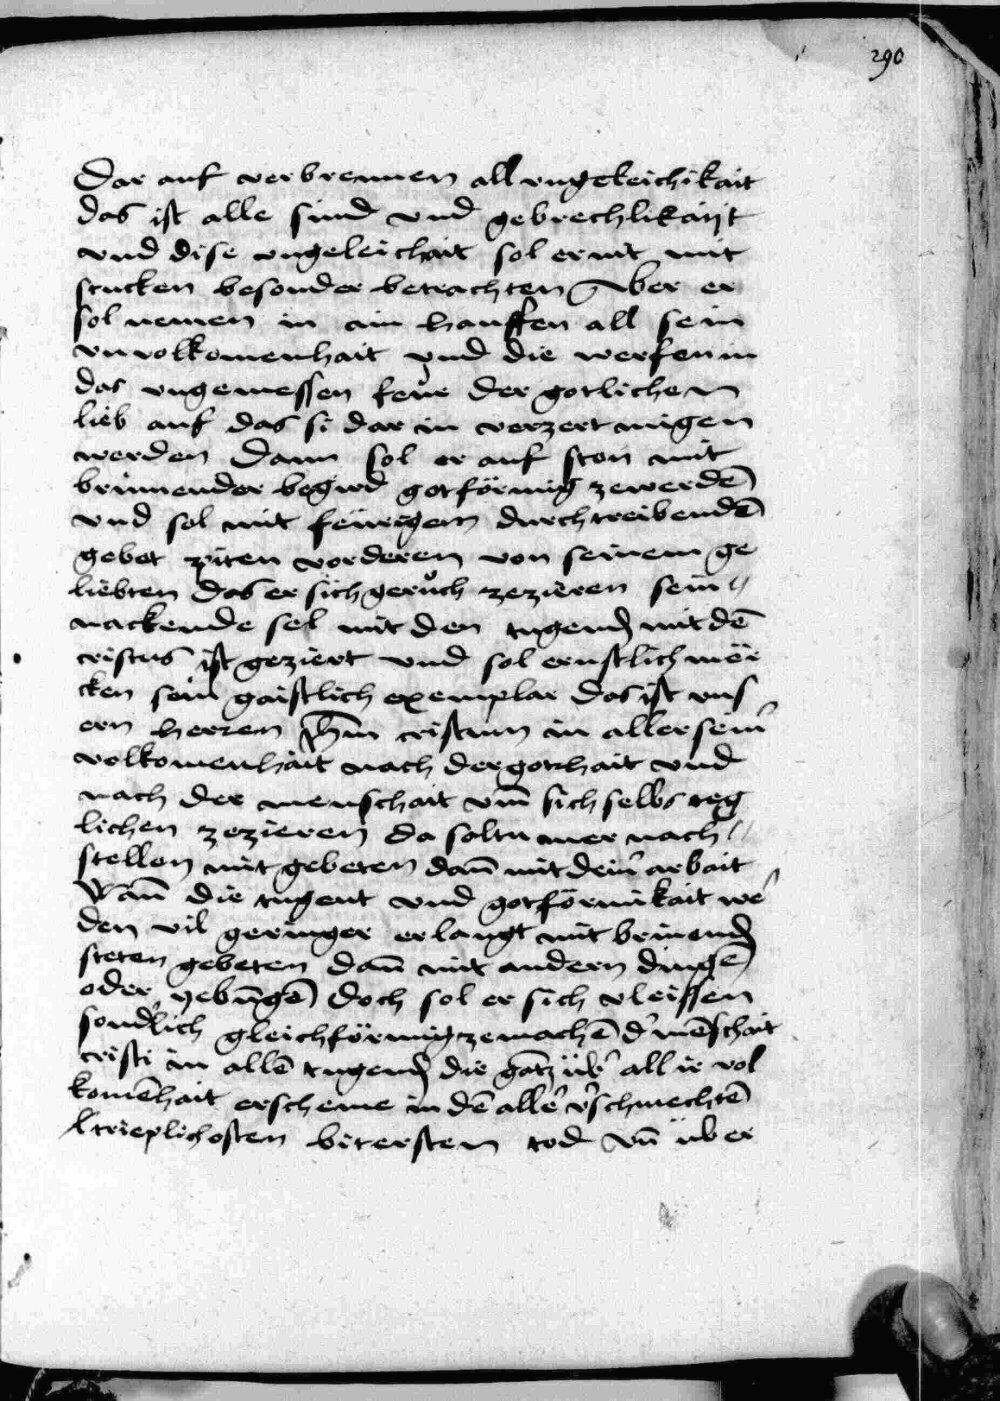 290
Dar auf verbrennen all vngeleichikait
das ist alle sünd vnd gebrechlikaijt
vnd dise vngeleichait sol er nit mit
stucken besonder betrachten Aber er
sol nemen in ain hauffen all sein
vnvolkomenhait vnd die werfen in
das vngemessen feür der gotlichen
lieb auf das si dar in verzert mügen
werden Dann sol er auf ston mit
brinnender begird gotförmig zewerdē
vnd sol mit feürigem durchtreibendē
gebet piten vorderen von seinem ge
liebten das er sich gerůch zezieren sein
nackende sel mit den tugend mit dē
cristus ist geziert vnd sol ernstlich mör
cken sein gaistlich exemplar das ist vns
ern herren Jhm cristum in aller sein'
volkomenhait nach der gothait vnd
nach der menschait vm̄ sich selbs teg
lichen zezieren da soltu mer nach
stellen mit gebeten dañ mit dein' arbait
Wañ die tugent vnd gotförmikait we'
den vil geringer erlangt mit brinend
steten gebeten dañ mit andern dingē
oder yebūgē Doch sol er sich vleissen
sond'lich gleichförmig zemachē d' mēschait
cristi in allē tugend die gātz üb' all ir vol
komēhait erscheine in dē alle' v'schmechtē
ltrieplichosten bitersten tod vñ über